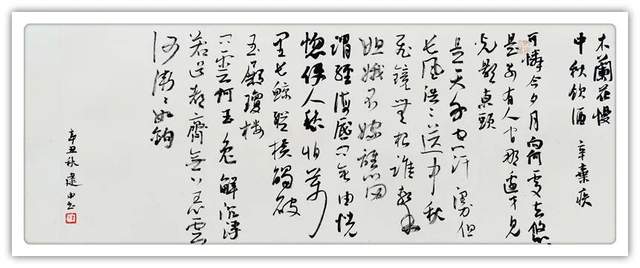 木蘭花慢
中秋飲酒 辛棄疾
可憐今夕月向何處去悠
是别有人间那邊才見
光影东頭
是天外空汗漫但
长風浩浩送中秋
飛鏡無根誰繫
姮娥不嫁誰留
謂經海底問無由恍
惚使人愁怕萬
里长鲸縱横觸破
玉殿瓊樓
問云何玉兔解沉浮
若道都齊無恙雲
何漸漸如鉤
辛丑秋